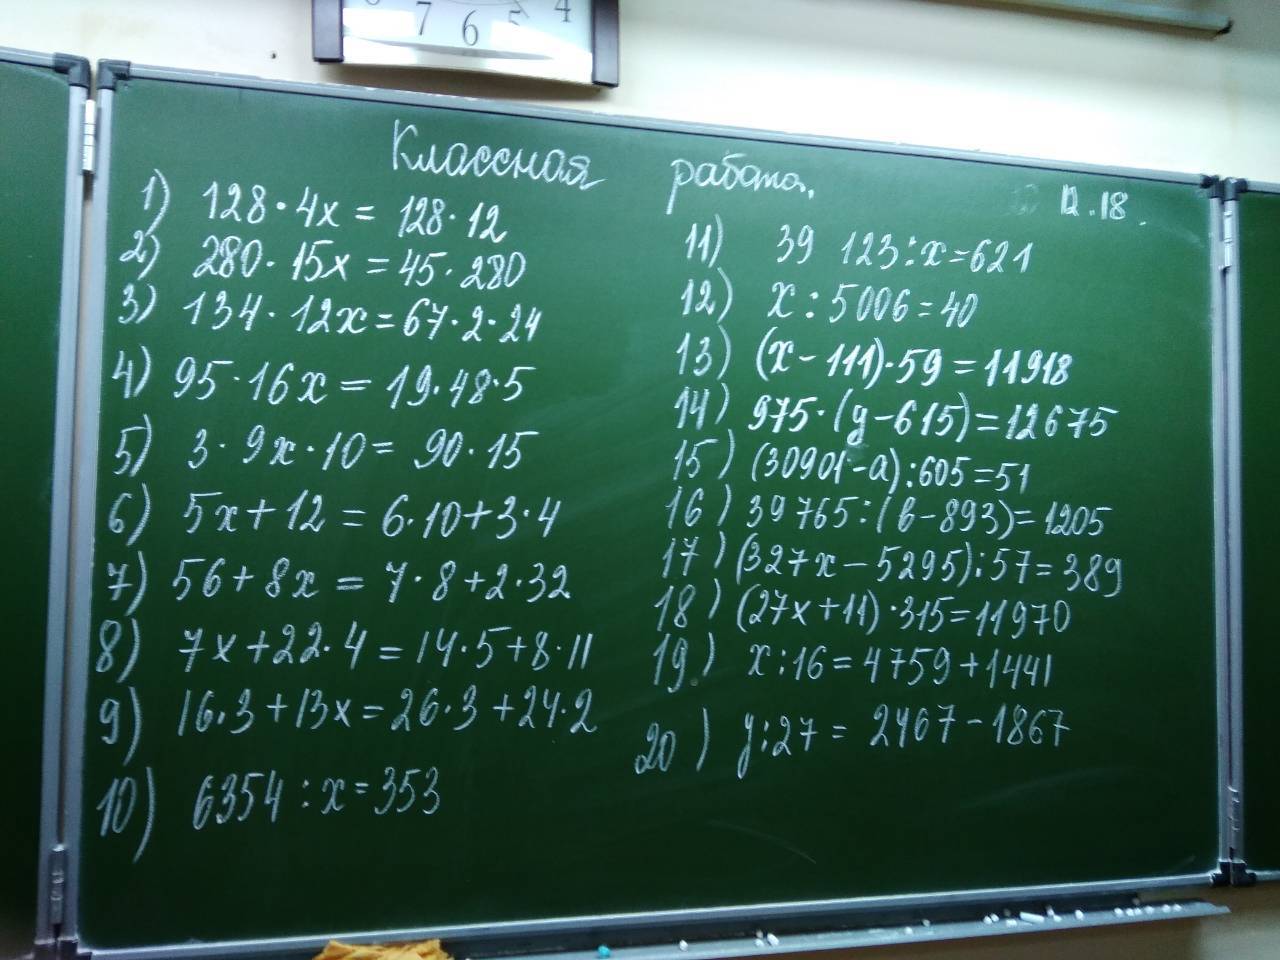 7 6 5 4
Классная работа.
12.18.
1) 128·4x = 128·12
2) 280·15x = 45·280
3) 134·12x = 67·2·24
4) 95·16x = 19·48·5
5) 3·9x·10 = 90·15
6) 5x+12 = 6·10+3·4
7) 56+8x = 7·8+2·32
8) 7x+22·4 = 14·5+8·11
9) 16·3+13x = 26·3+24·2
10) 6354:x=353
11) 39 123:x=621
12) x:5006=40
13) (x-111)·59=11918
14) 975·(y-615)=12675
15) (30901-a):605=51
16) 39765:(в-893)=1205
17) (327x-5295):57=389
18) (27x+11)·315=11970
19) x:16=4759+1441
20) y:27= 2467-1867